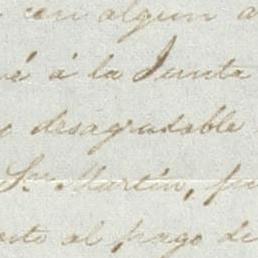 en algun a
á la Junta
o desagradable
Sr. Martin, pu
al pago de